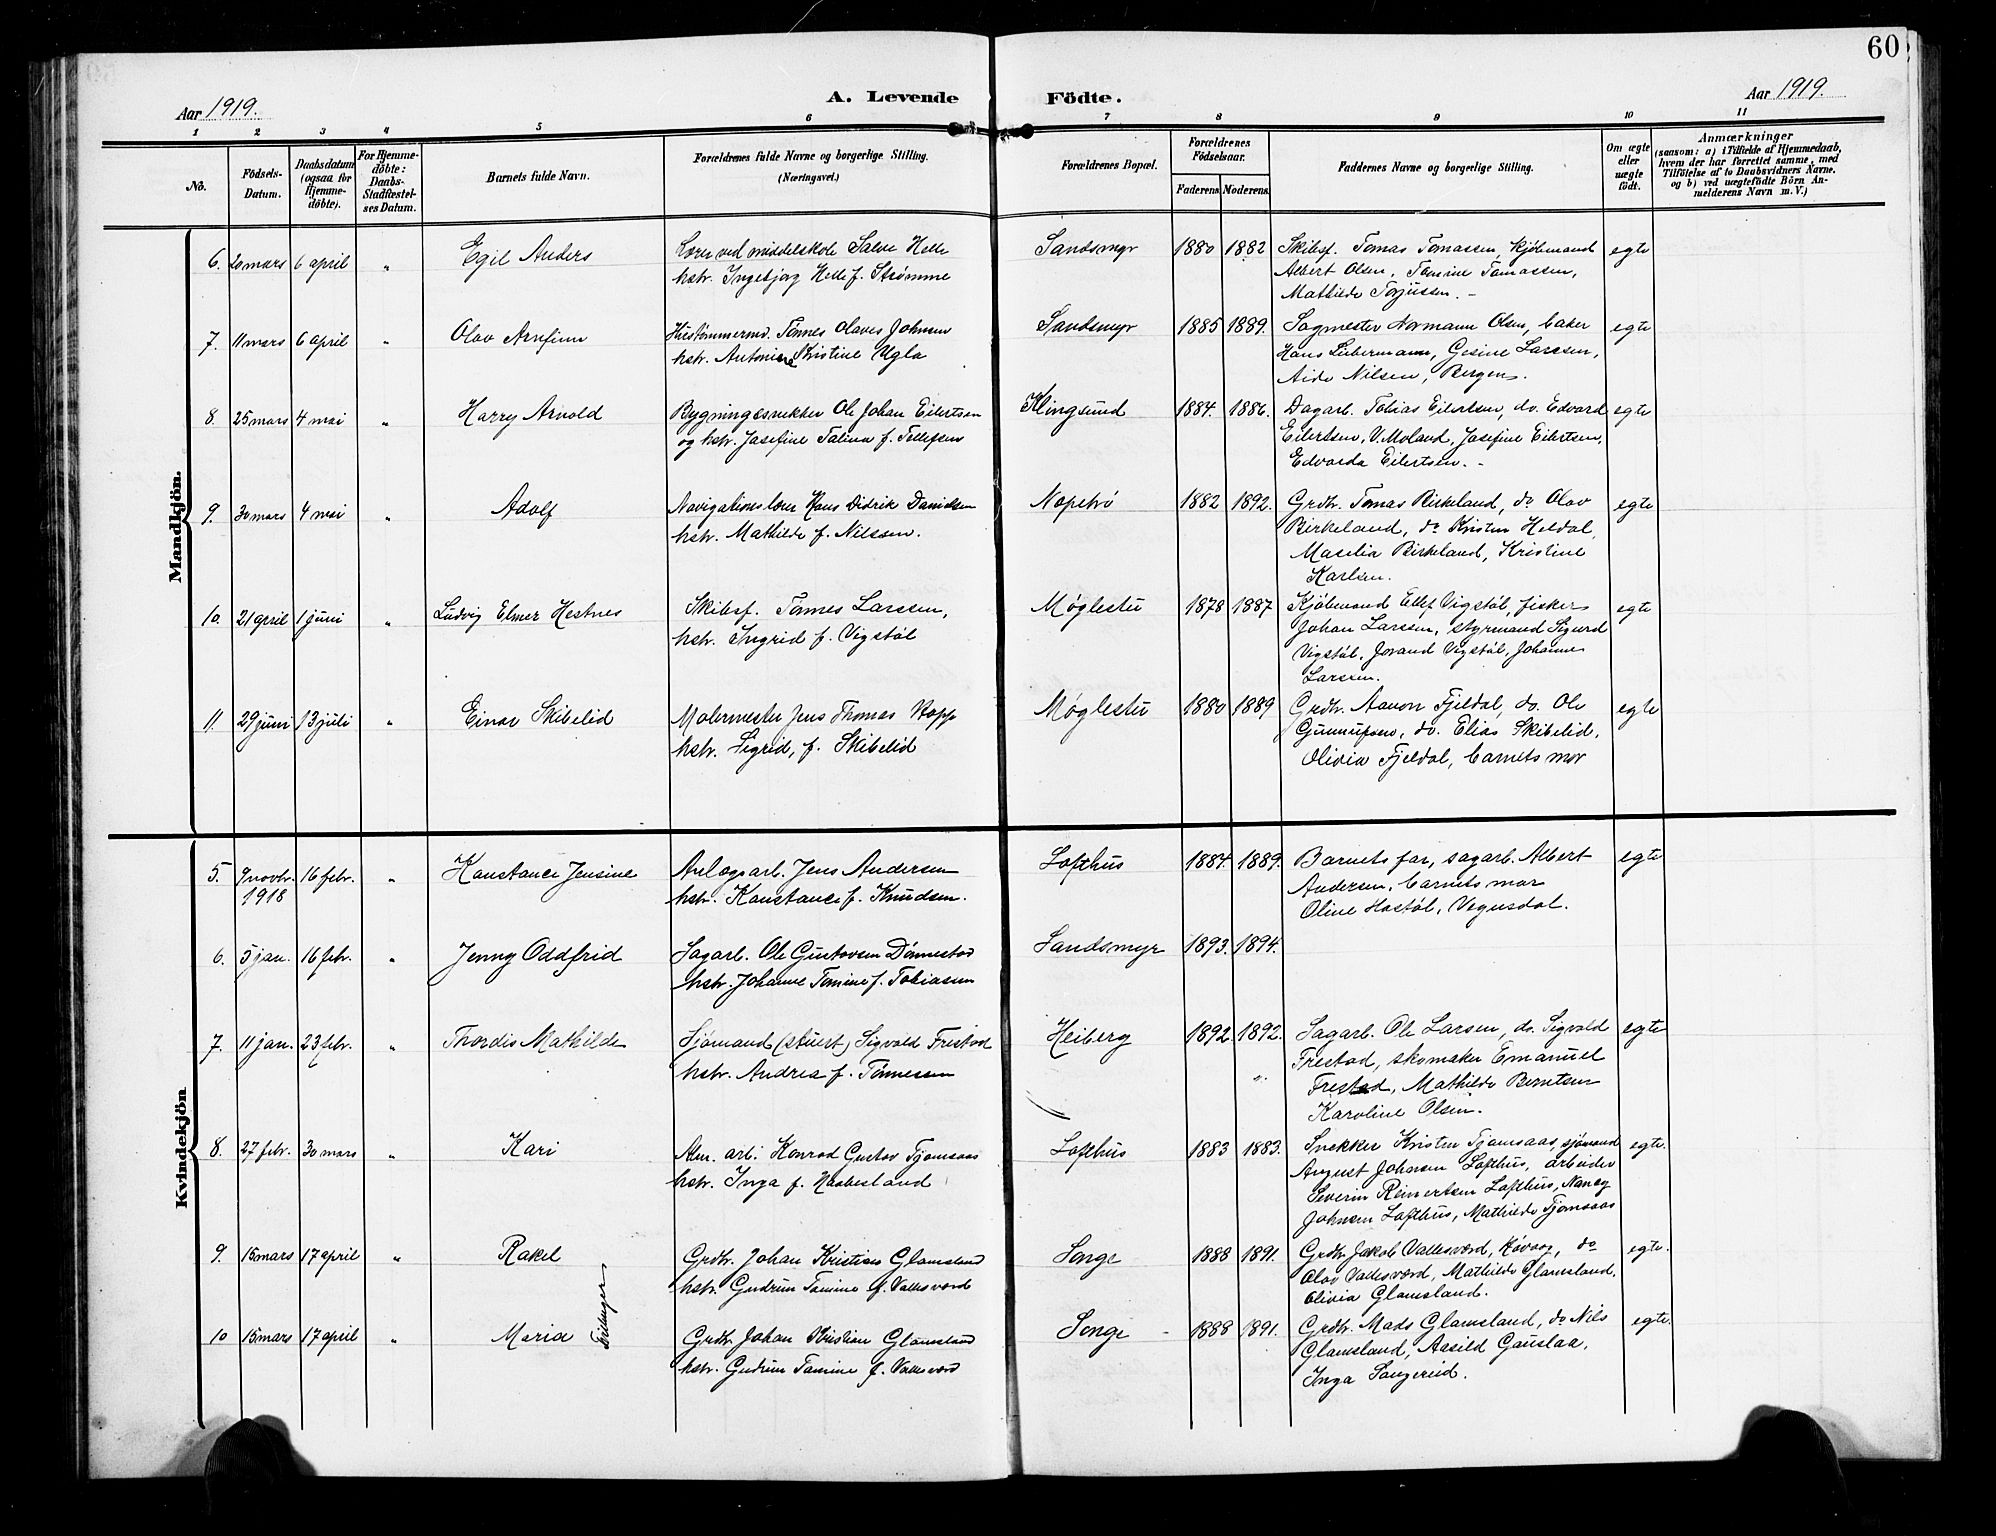 60
Aar 1919.
A. Levende Födte.
Aar 1919.
1 2 3 4 5 6 7 8 9 10 11
No.
Födsels-Datum.
Daabsdatum (ogsaa for Hjemme-döbte).
For Hjemme-döbte: Daabs-Stadfæstel-ses Datum.
Barnets fulde Navn.
Forældrenes fulde Navne og borgerlige Stilling. (Næringsvei.)
Forældrenes Bopæl.
Forældrenes Födselsaar.
Faderens. Moderens.
Faddernes Navne og borgerlige Stilling.
Om ægte eller uægte födt.
Anmærkninger
(saasom: a) i Tilfælde af Hjemmedaab,
hvem der har forrettet samme, med
Tilföielse af to Daabsvidners Navne.
og b) ved uægtefödte Börn An-
melderens Navn m. V.)
Mandkjön.
6. 20 mars 6 april " Egil Anders Lærer ved middelskole Salve Helle Sandsmyr 1880 1882 Skibsf. Tomas Tomassen, kjöbmand egte
hstr. Ingebjorg Helle f. Strømme Albert Olsen, Tomine Tomassen,
Mathilde Torjussen. -
7. 11 mars 6 april " Olav Arnfinn Hustømmermd. Tönnes Olaves Johnsen Sandsmyr 1885 1889. Sagmester Normann Olsen, baker egte
hstr. Antonine Kristine Ugla Hans Liebermann, Gesine Larssen,
Aide Nilsen, Bergen.
8. 25 mars 4 mai " Harry Arnold Bygningssnekker Ole Johan Eilertsen Klingsund 1884. 1886. Dagarb. Tobias Eilertsen, do. Edvard egte
og hstr. Josefine Talina f. Tellefsen Eilertsen, V. Moland, Josefine Eilertsen,
Edvarda Eilertsen. -
9. 30 mars 4 mai " Adolf Navigationslærer Hans Didrik Danielsen Nopetrö 1882 1892. Grdbr. Tomas Birkeland, do Olav egte
hstr. Mathilde f. Nilssen. Birkeland, do Kristen Heldal,
Maselia Birkeland, Kristine
Karlsen.
10. 21 april 1 juni " Ludvig Elmer Hestnes Skibsf. Tönnes Larssen, Møglestu 1878 1887 Kjöbmand Ellef Vigstöl, fisker egte
hstr. Ingrid f. Vigstöl Johan Larssen, styrmand Sigurd
Vigstöl, Jorand Vigstöl, Johanne
Larssen.
11. 29 juni 13 juli " Einar Skibelid Malermester Jens Thomas Kopp Møglestu 1880 1889 Grdbr. Aanon Fjeldal, do. Ole egte
hstr. Sigrid, f. Skibelid Gunnufsen, do. Elias Skibelid,
Olivia Fjeldal, barnets mor
Kvindekjön
5. 9 novbr. 16 febr. " Konstance Jensine Anlægsarb. Jens Andersen Lofthus 1884. 1889. Barnets far, sagarb. Albert egte
1918 hstr. Konstance f. Knudsen. Andersen, barnets mor
Oline Hastöl, Vegusdal.
6. 5 jan. 16 febr. " Jenny Oddfrid Sagarb. Ole Gustavsen Dönnestad Sandsmyr 1893. 1894.
hstr. Johanne Tomine f. Tobiassen
7. 11 jan. 23 febr. " Thordis Mathilde Sjömand (stuert) Sigvald Frestad Heiberg 1892. 1892. Sagarb. Ole Larsen, do. Sigvald egte
hstr. Andrea f. Tönnessen Frestad, skomaker Emanuel
Frestad, Mathilde Berntsen
Karoline Olsen.
8. 27 febr. 30 mars " Kari Alm. arb. Konrad Gustav Tjomsaas Lofthus 1883 1883. Snekker Kristen Tjomsaas, sjömand egte.
hstr. Inga f. Haabesland August Johnsen Lofthus, arbeider
Severin Reinertsen Lofthus, Nancy
Johnsen Lofthus, Mathilde Tjomsaas
9. 15 mars 17 april " Rakel Grdbr. Johan Kristian Glamsland Songe 1888 1891. Grdbr. Jakob Vallesværd, Hövaag, do egte.
hstr. Gudrun Tomine f. Vallesværd Olav Vallesværd, Mathilde Glamsland.
Olivia Glamsland.
Tvillinger
10 15 mars 17 april " Maria Grdbr. Johan Kristian Glamsland Songe 1888 1891. Grdbr. Mads Glamsland, do Nils egte.
hstr. Gudrun Tomine f. Vallesværd Glamsland, Aasild Gauslaa,
Inga Sangereid.